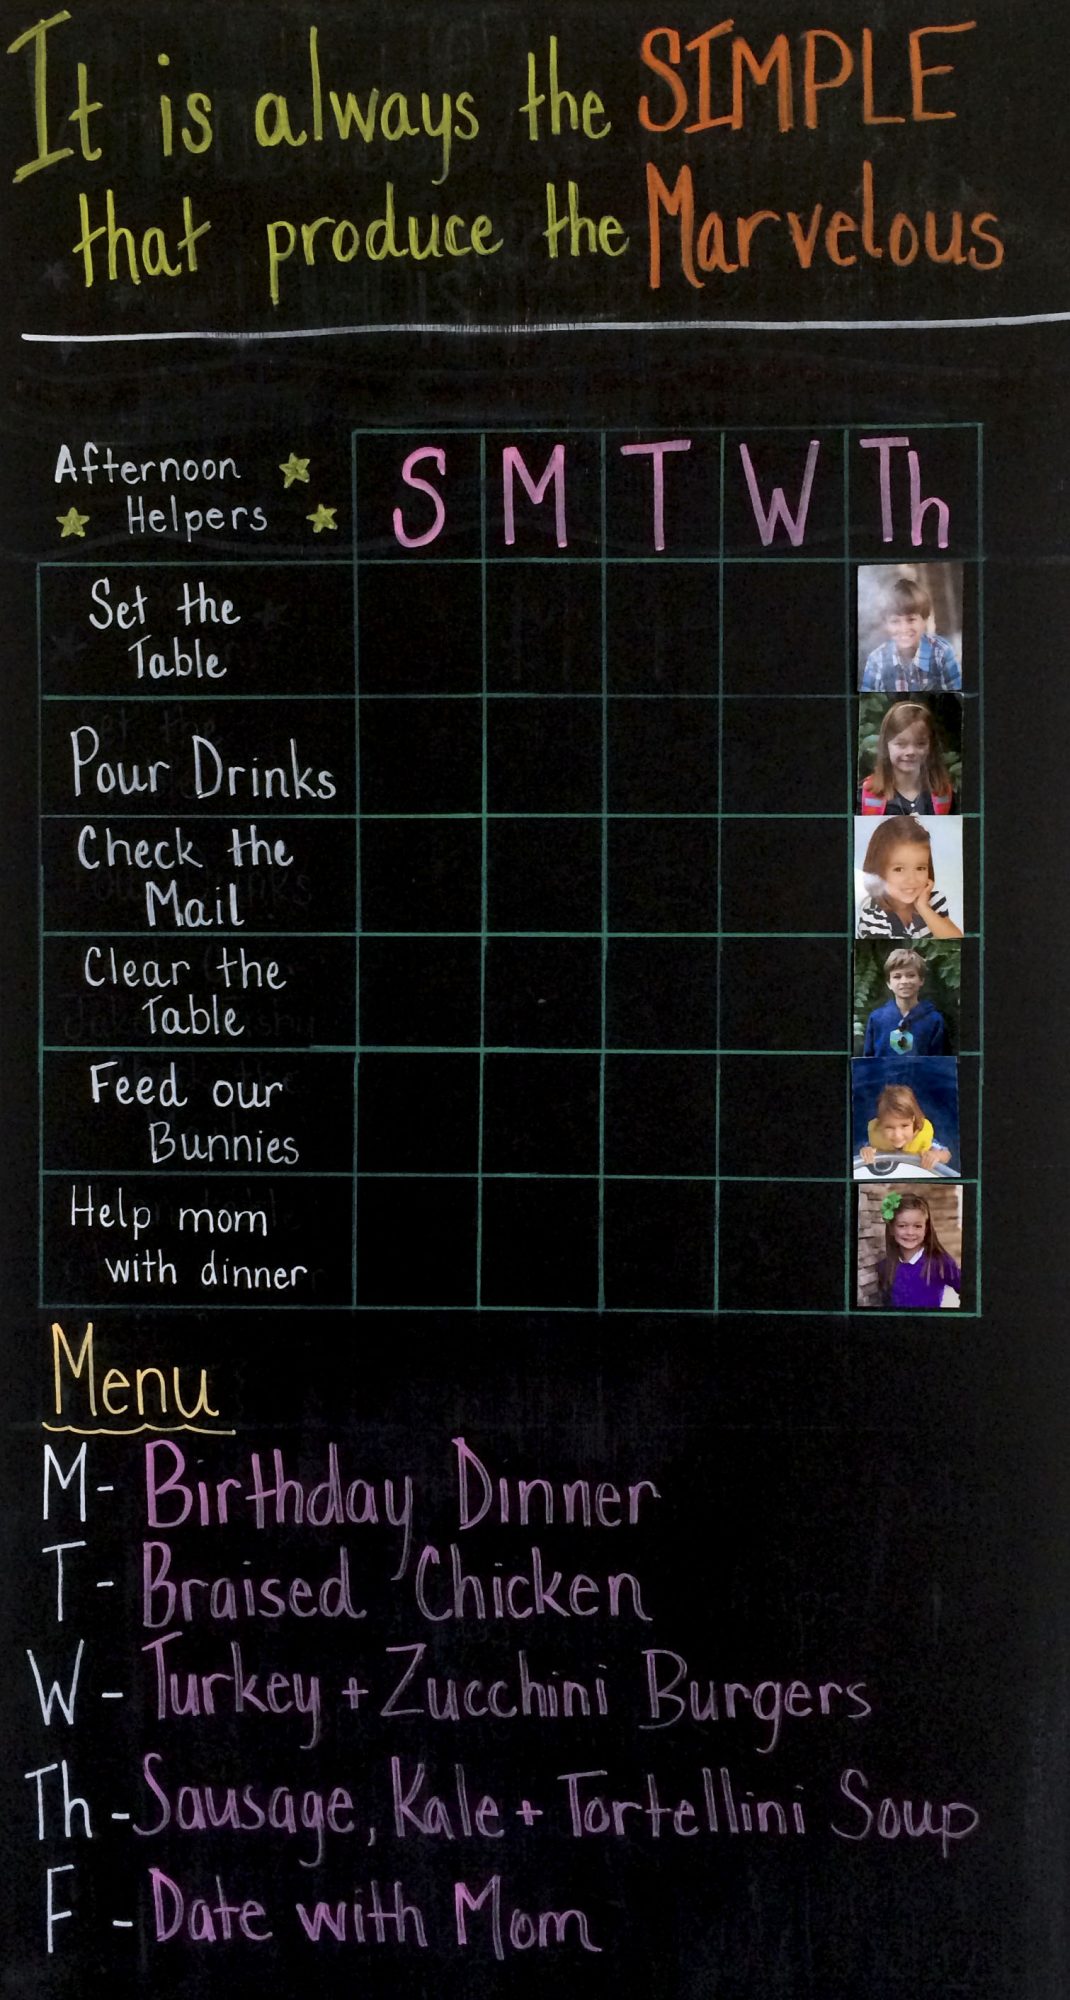 It is always the SIMPLE
that produce the Marvelous
Afternoon
Helpers
S M T W Th
Set the
Table
Pour Drinks
Check the
Mail
Clear the
Table
Feed our
Bunnies
Help mom
with dinner
Menu
M- Birthday Dinner
T- Braised Chicken
W- Turkey + Zucchini Burgers
Th- Sausage, Kale + Tortellini Soup
F - Date with Mom